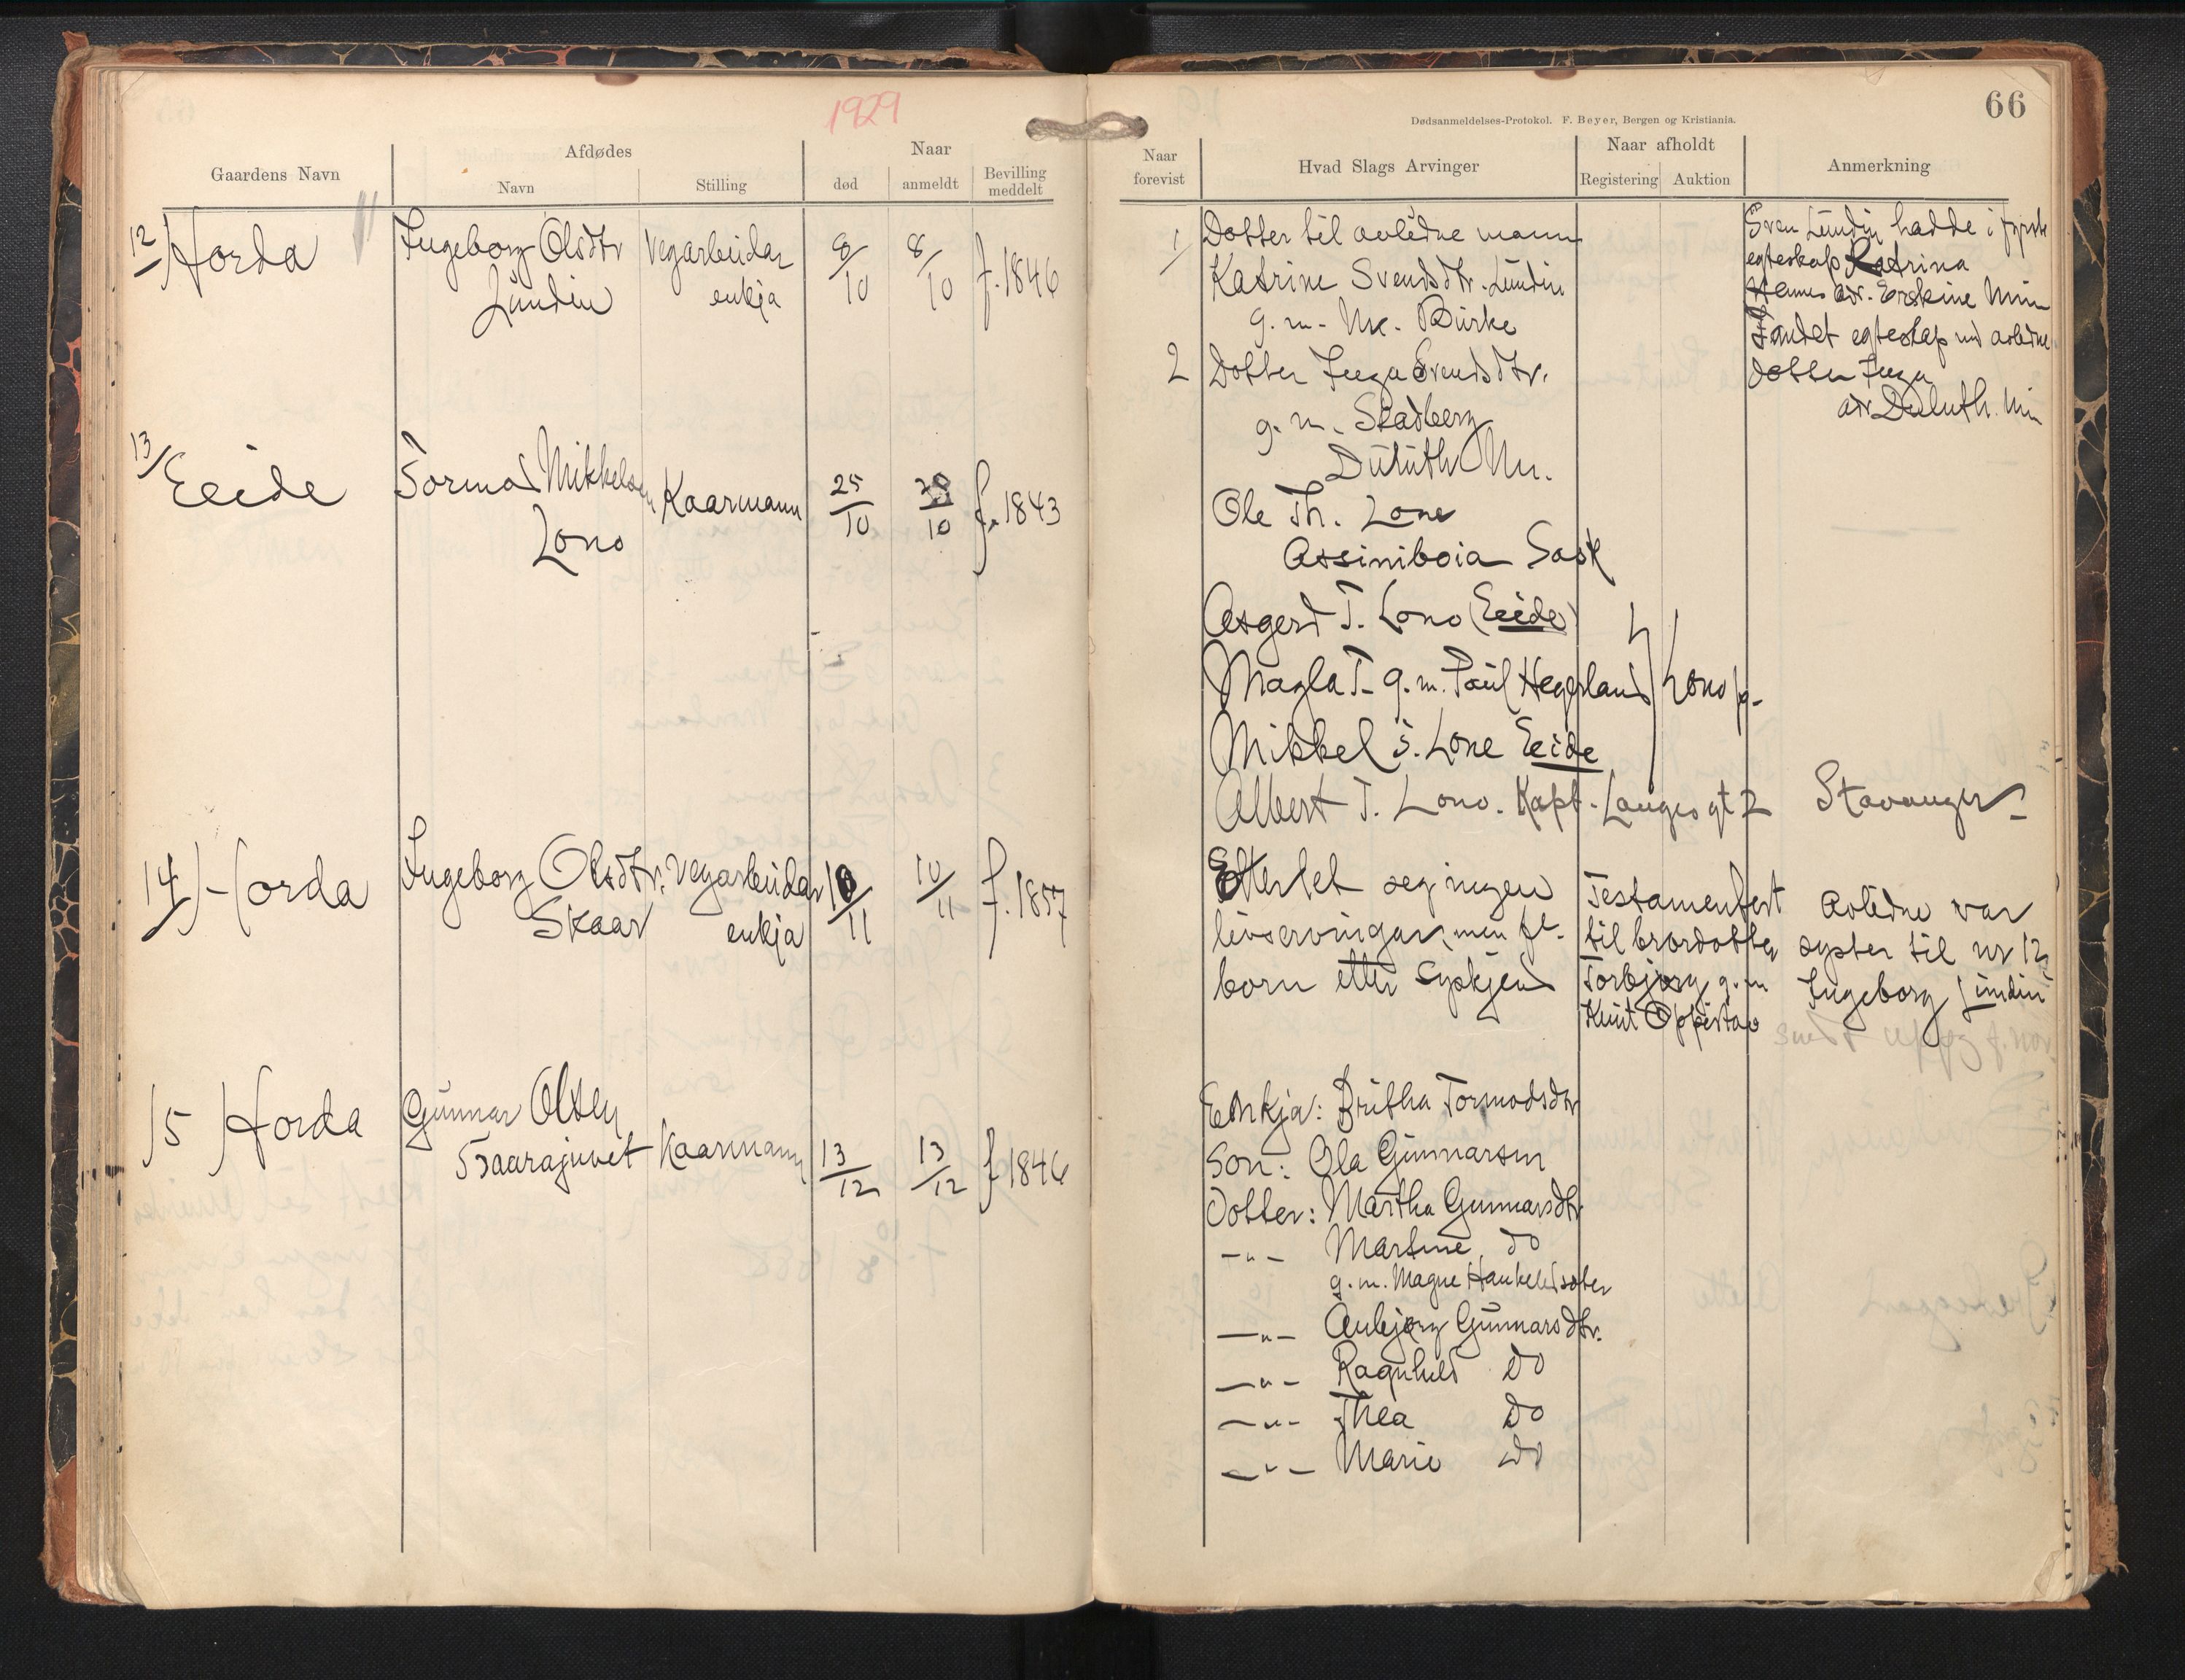 1929
66
Dødsanmeldelses-Protokol. F. Beyer, Bergen og Kristiania.
Gaardens Navn
Afdødes
Navn
Stilling
Naar
død
anmeldt
Bevilling meddelt
Naar forevist
Hvad Slags Arvinger
Naar afholdt
Registering
Auktion
Anmerkning
12) Horda
Ingeborg Olsdtr
Lundin
Vegarbeidar
enkja
8/10
8/10
f. 1846
1 Dotter til avlidne mann
Katrine Svendsdtr. Lundin
g. m. Mr. Burke
2 Dotter Inga Svendsdtr.
g. m. Stadberg
Duluth Mn.
Sven Lundin hadde i fyrste
egteskap Katrina
Hennes adr. Erskine Minn
I andet egteskap med avlidne
dotter Inga
adr Duluth. Min
13/ Eeide
Tormod Mikkelsen
Lono
Kaarmann
25/10
/10
f. 1843
Ole Th. Lone
Assiniboia Sask
Asgerd T. Lono (Eeide)
Magla T. g. m. Paul Hegerland Lono pg.
Mikkel T. Lone Eeide
Albert T. Lono. Kapt. Langes gt 2 Stavanger
14) Horda
Ingeborg Olsdtr.
Skaar
Vegarbeidar
enkja
10/11
10/11
f. 1857
Etterlet seg ingen
livsarvingar, men fl.
born etter syskjend
Testamentert
til brordotter
Torbjorg g. m
Knut Oppistao
Avlidne var
syster til nr 12
Ingeborg Lundin
15) Horda
Gunnar Olsen
Taarajuvet
Kaarmann
13/12
13/12
f 1846
Enkja: Britha Tormodsdtr
Son: Ola Gunnarsen
Dotter: Martha Gunnarsdtr
—"— Martine do
g. m. Magne Haukeledsæter
—"— Anbjørg Gunnarsdtr.
—"— Ragnhild do
—"— Thea do
—"— Marie do